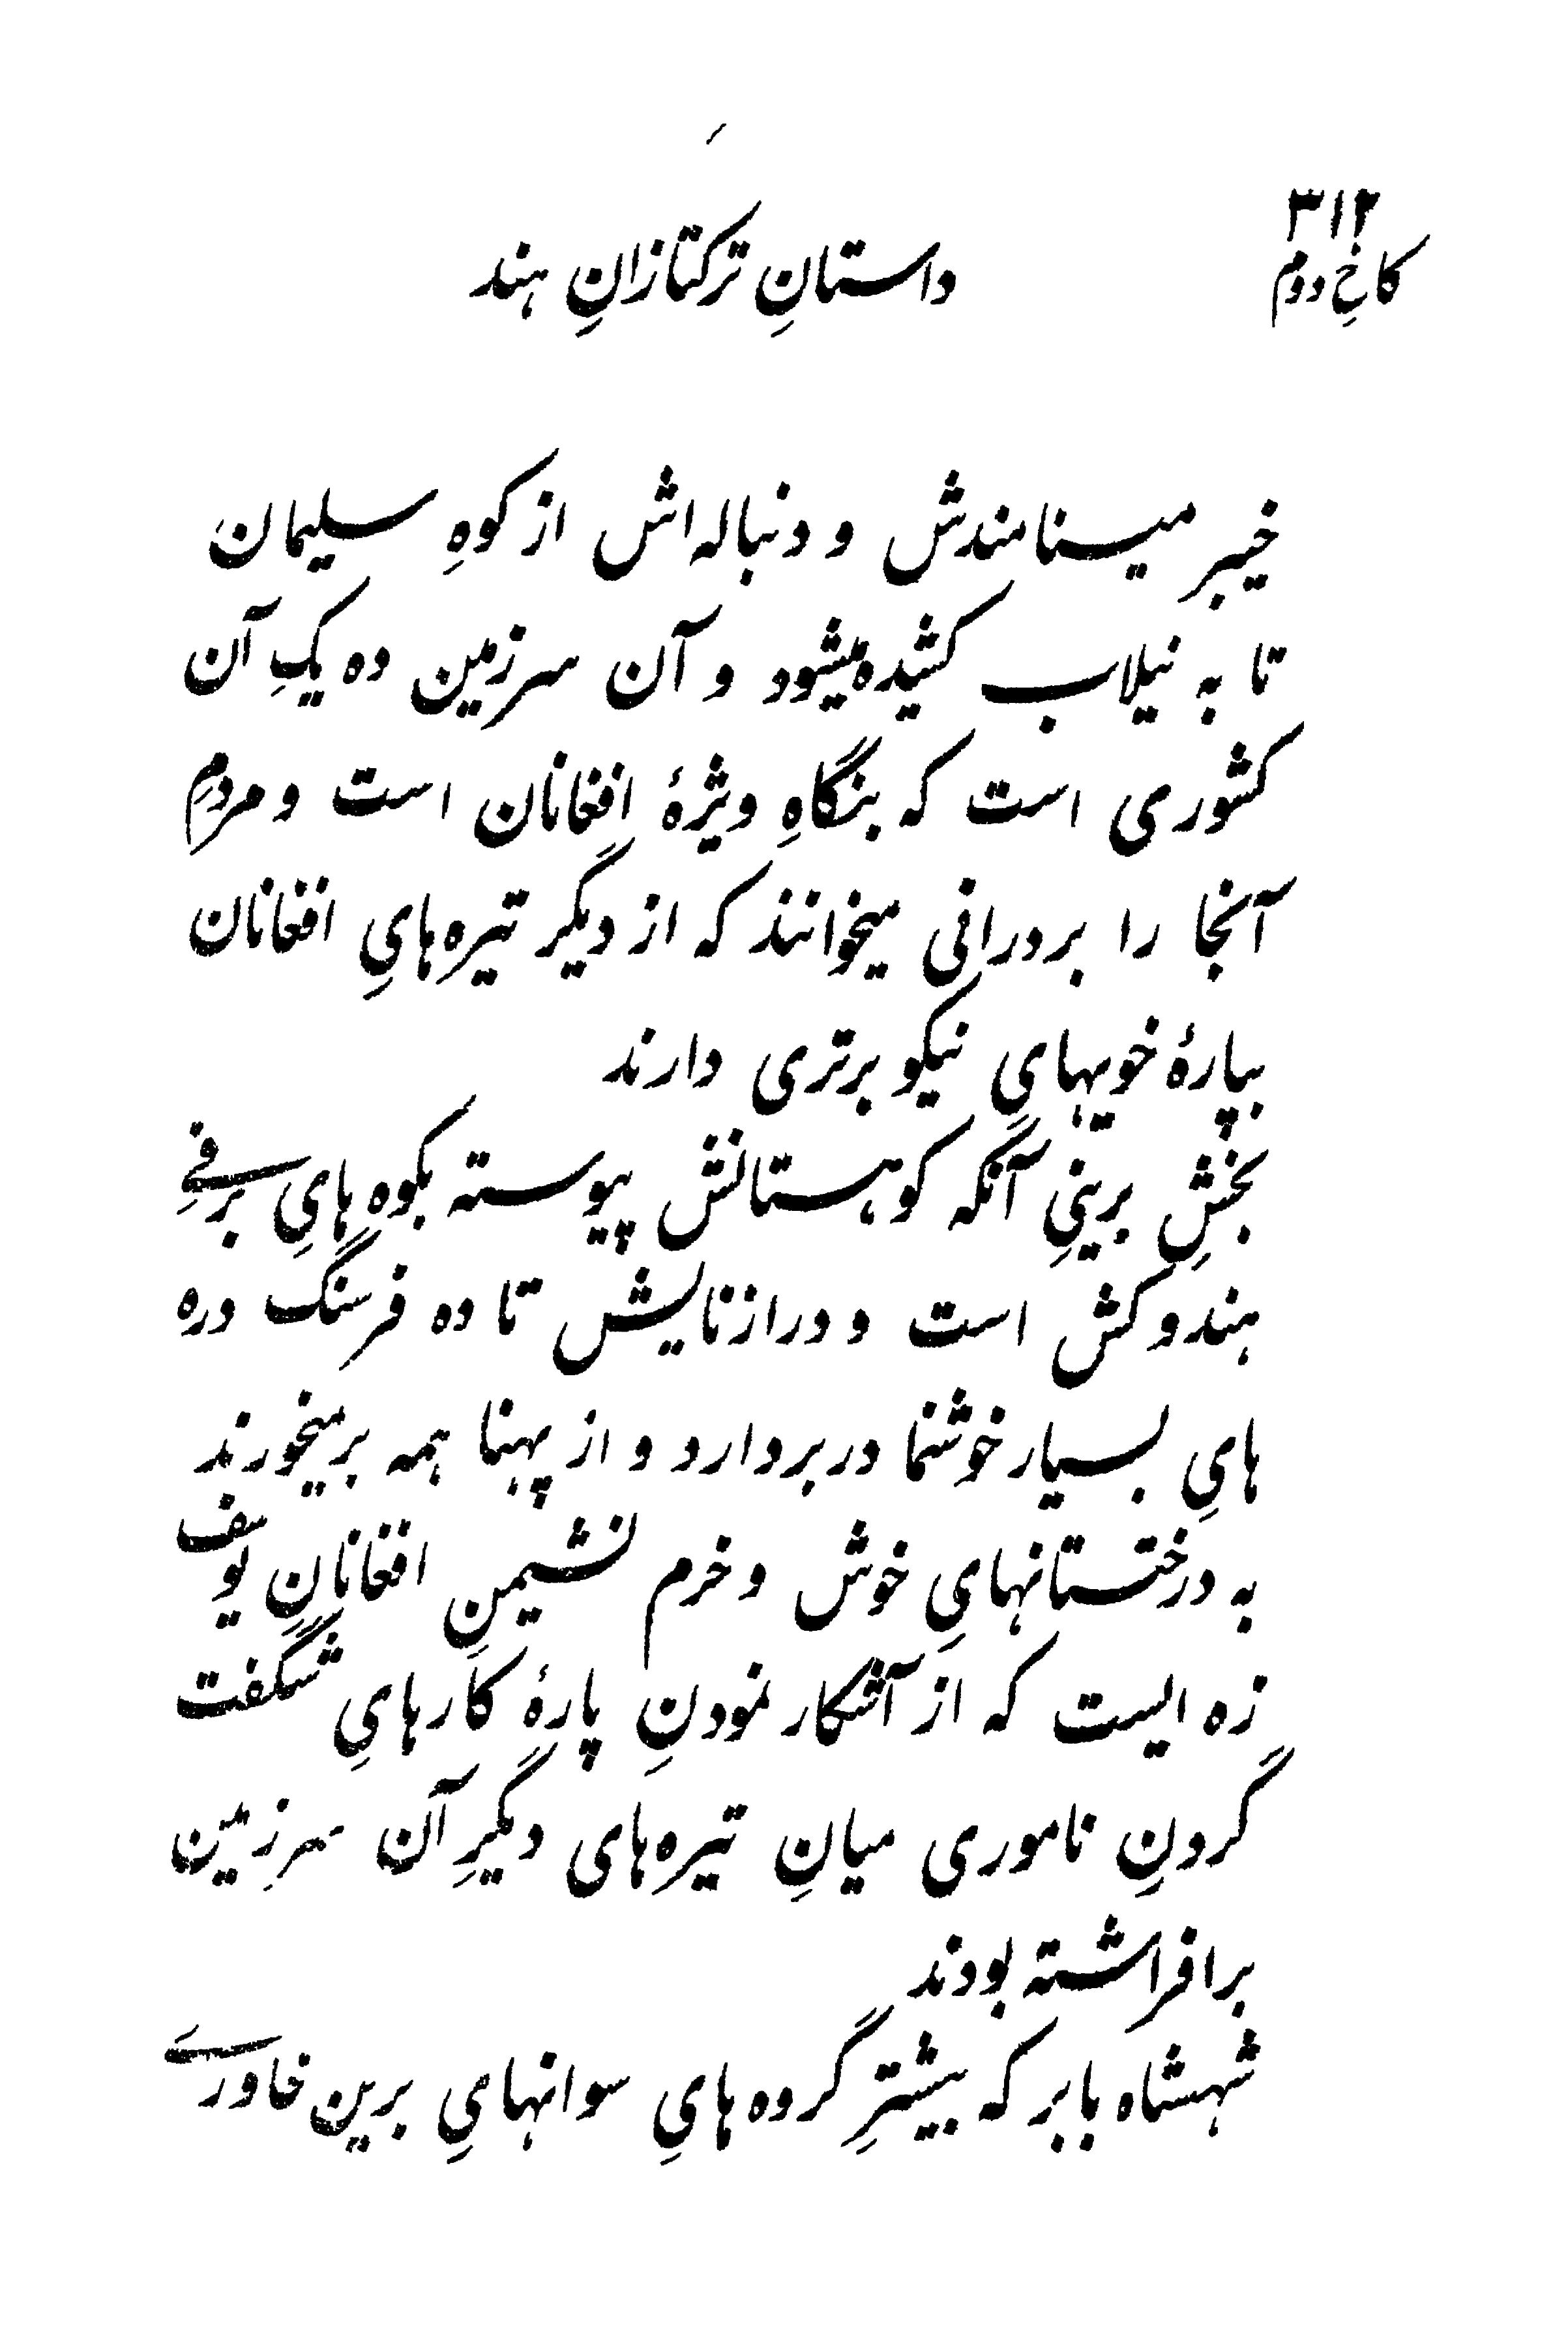 ۳۱۲
کاخِ دوم
داستانِ ترکتازانِ هند
خیبر مینامندش و دنباله‌اش از کوهِ سلیمان
تا به نیلاب کشیده میشود و آن سرزمین ده یکِ آن
کشوری است که بنگاهِ ویژهٔ افغانان است و مردمِ
آنجا را بردرانی میخوانند که از دیگر تیره‌هایِ افغانان
بپارهٔ خویهایِ نیکو برتری دارند
بخشِ برینیِ آنکه کوهستانش پیوسته بکوه‌هایِ برفیِ
هندوکش است و درازنایش تا ده فرسنگ دره
هایِ بسیار خوشنما دربردارد و از پهنا همه برمیخورند
به درختستانهایِ خوش و خرم نشیمنِ افغانانِ یوسف
زه ایست که از آشکار نمودنِ پارهٔ کارهایِ شگفت
گردنِ ناموری میانِ تیره‌های دیگرِ آن سرزمین
برافراشته بودند
شهنشاه بابر که بیشترِ گروه‌هایِ سوانهایِ برین خاوری